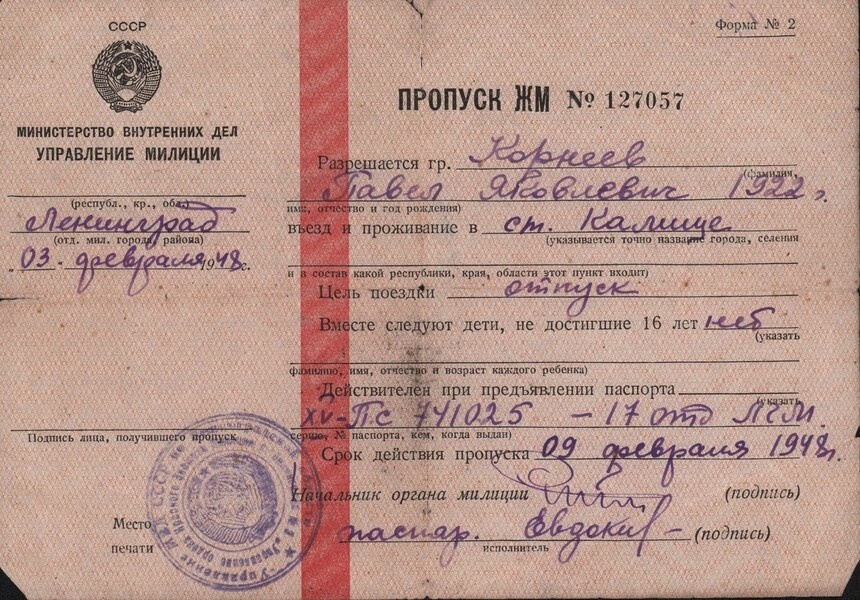 СССР
МИНИСТЕРСТВО ВНУТРЕННИХ ДЕЛ
УПРАВЛЕНИЕ МИЛИЦИИ
(республ., кр., обл.)
Ленинград
(отд. мил. города, района)
„03. февраля 1948 г.
Подпись лица, получившего пропуск
Место
печати
Форма № 2
ПРОПУСК ЖМ № 127057
Разрешается гр. Корнеев
(фамилия,
Павел Яковлевич 1922 г.
имя, отчество и год рождения)
въезд и проживание в ст. Калище
(указывается точно название города, селения
и в состав какой республики, края, области этот пункт входит)
Цель поездки отпуск
Вместе следуют дети, не достигшие 16 лет нет
(указать
фамилию, имя, отчество и возраст каждого ребенка)
Действителен при предъявлении паспорта
(указать
XV-Пс 741025 – 17 отд ЛГМ.
серию, № паспорта, кем, когда выдан)
Срок действия пропуска 09 февраля 1948 г.
Начальник органа милиции (подпись)
паспар. (подпись)
исполнитель